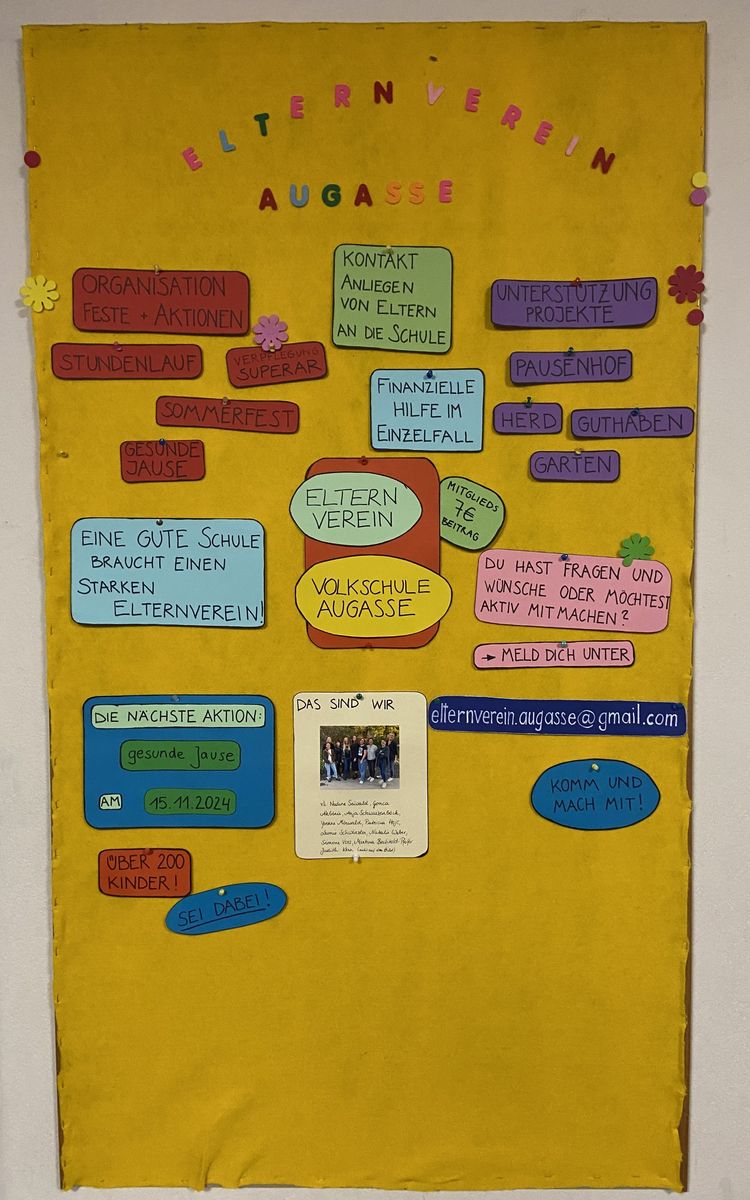 ELTERNVEREIN
AUGASSE
ORGANISATION
FESTE + AKTIONEN
STUNDENLAUF
VERPFLEGUNG
SUPERAR
SOMMERFEST
GESUNDE
JAUSE
KONTAKT
ANLIEGEN
VON ELTERN
AN DIE SCHULE
FINANZIELLE
HILFE IM
EINZELFALL
UNTERSTÜTZUNG
PROJEKTE
PAUSENHOF
HERD
GUTHABEN
GARTEN
ELTERN
VEREIN
VOLKSCHULE
AUGASSE
MITGLIEDS
7€
BEITRAG
EINE GUTE SCHULE
BRAUCHT EINEN
STARKEN
ELTERNVEREIN!
DU HAST FRAGEN UND
WÜNSCHE ODER MÖCHTEST
AKTIV MITMACHEN?
→ MELD DICH UNTER
elternverein.augasse@gmail.com
KOMM UND
MACH MIT!
DIE NÄCHSTE AKTION:
gesunde Jause
AM 15.11.2024
ÜBER 200
KINDER!
SEI DABEI!
DAS SIND WIR